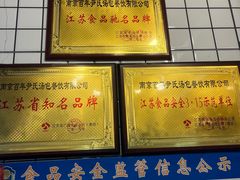 南京百年尹氏汤包餐饮有限公司
江苏食品驰名品牌
南京百年尹氏汤包餐饮有限公司
江苏省知名品牌
南京百年尹氏汤包餐饮有限公司
江苏食品安全3·15示范单位
食品安全监管信息公示